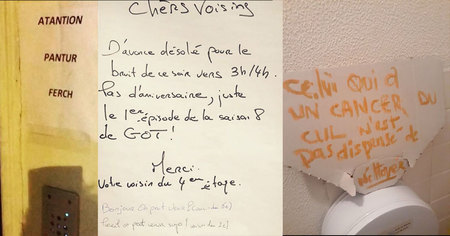 ATANTION
PANTUR
FERCH
Chèrs Voising
D'avance désolé pour le
bruit de ce soir vers 3h/4h.
Pas d'anniversaire, juste
le 1er épisode de la saison 8
de GOT!
Merci.
Votre voisin du 4em étage.
CELUI QUI A
UN CANCER DU
CUL N'EST
PAS dispensé de
nettoyer